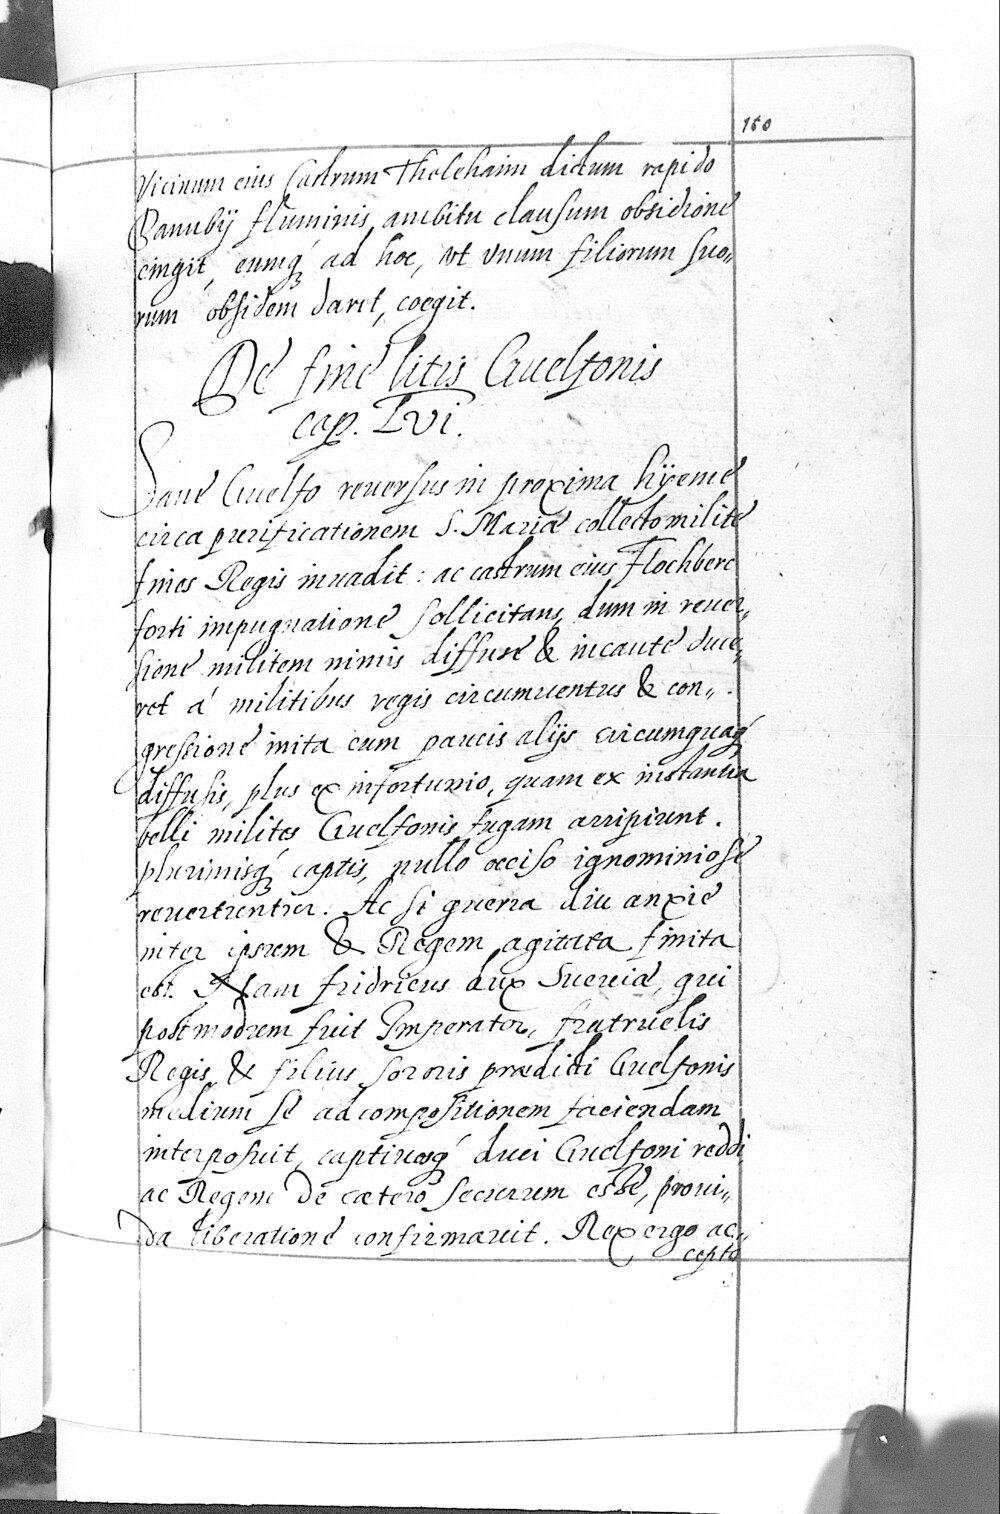 160
Vicinum eius Castrum Thelehaim dictum rapido
Danubij fluminis ambitu clausum obsidione
cingit, eumq́ ad hoc, vt vnum filiorum suo„
rum obsidem daret, coegit.
De fine litis Guelfonis
cap. LVI.
Sane Guelfo reuersus in proxima hÿeme
circa purificationem S. Mariæ collecto milite
fines Regis inuadit: ac castrum eius Flochberc
forti impugnatione sollicitans, dum in reuer„
sione militem nimis diffuse & incaute duce„
ret á militibus regis circumuentus & con„
gressione inita cum paucis alijs circumquaq́
diffusis, plus ex infortunio, quam ex instantia
belli milites Guelfonis fugam arripiunt.
plurimisq́ captis, nullo occiso ignominiose
reuertuntur. Ac si guerra diu anxie
inter ipsum & Regem agitata finita
est. Nam fridricus dux Sueuiæ, qui
postmodum fuit Imperator, fratruelis
Regis & filius sororis prædicti Guelfonis
medium se ad compositionem faciendam
interposuit, captiuosq́ duci Guelfoni reddi,
ac Regem de cætero securum esse, proui„
da liberatione confirmauit. Rex ergo ac„
cepto